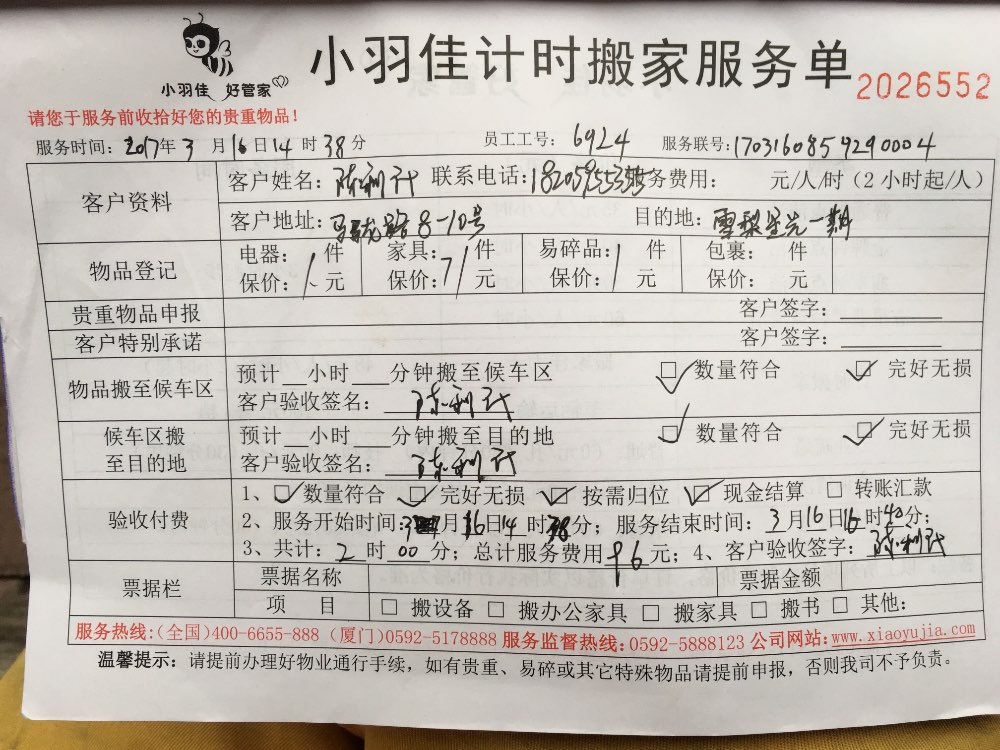 小羽佳 好管家
小羽佳计时搬家服务单
2026552
请您于服务前收拾好您的贵重物品！
服务时间：2017年3月16日14时38分 员工工号：6924 服务联号：1703160859290004
客户资料
客户姓名：陈利 联系电话： 务费用： 元/人/时（2小时起/人）
客户地址：8-10号 目的地：雪梨星光一期
物品登记
电器：1件 家具：71件 易碎品：1件 包裹： 件
保价： 元 保价： 元 保价： 元 保价： 元
贵重物品申报 客户签字：
客户特别承诺 客户签字：
物品搬至候车区
预计__小时___分钟搬至候车区 ☑ 数量符合 ☑ 完好无损
客户验收签名：陈利
候车区搬至目的地
预计__小时___分钟搬至目的地 ☑ 数量符合 ☑ 完好无损
客户验收签名：陈利
验收付费
1、☑ 数量符合 ☑ 完好无损 ☑ 按需归位 ☑ 现金结算 □ 转账汇款
2、服务开始时间：3月16日14时38分；服务结束时间：3月16日16时40分；
3、共计：2时00分；总计服务费用 元；4、客户验收签字：陈利
票据栏
票据名称 票据金额
项 目 □ 搬设备 □ 搬办公家具 □ 搬家具 □ 搬书 □ 其他：
服务热线：（全国）400-6655-888（厦门）0592-5178888 服务监督热线：0592-5888123 公司网站：www.xiaoyujia.com
温馨提示：请提前办理好物业通行手续，如有贵重、易碎或其它特殊物品请提前申报，否则我司不予负责。